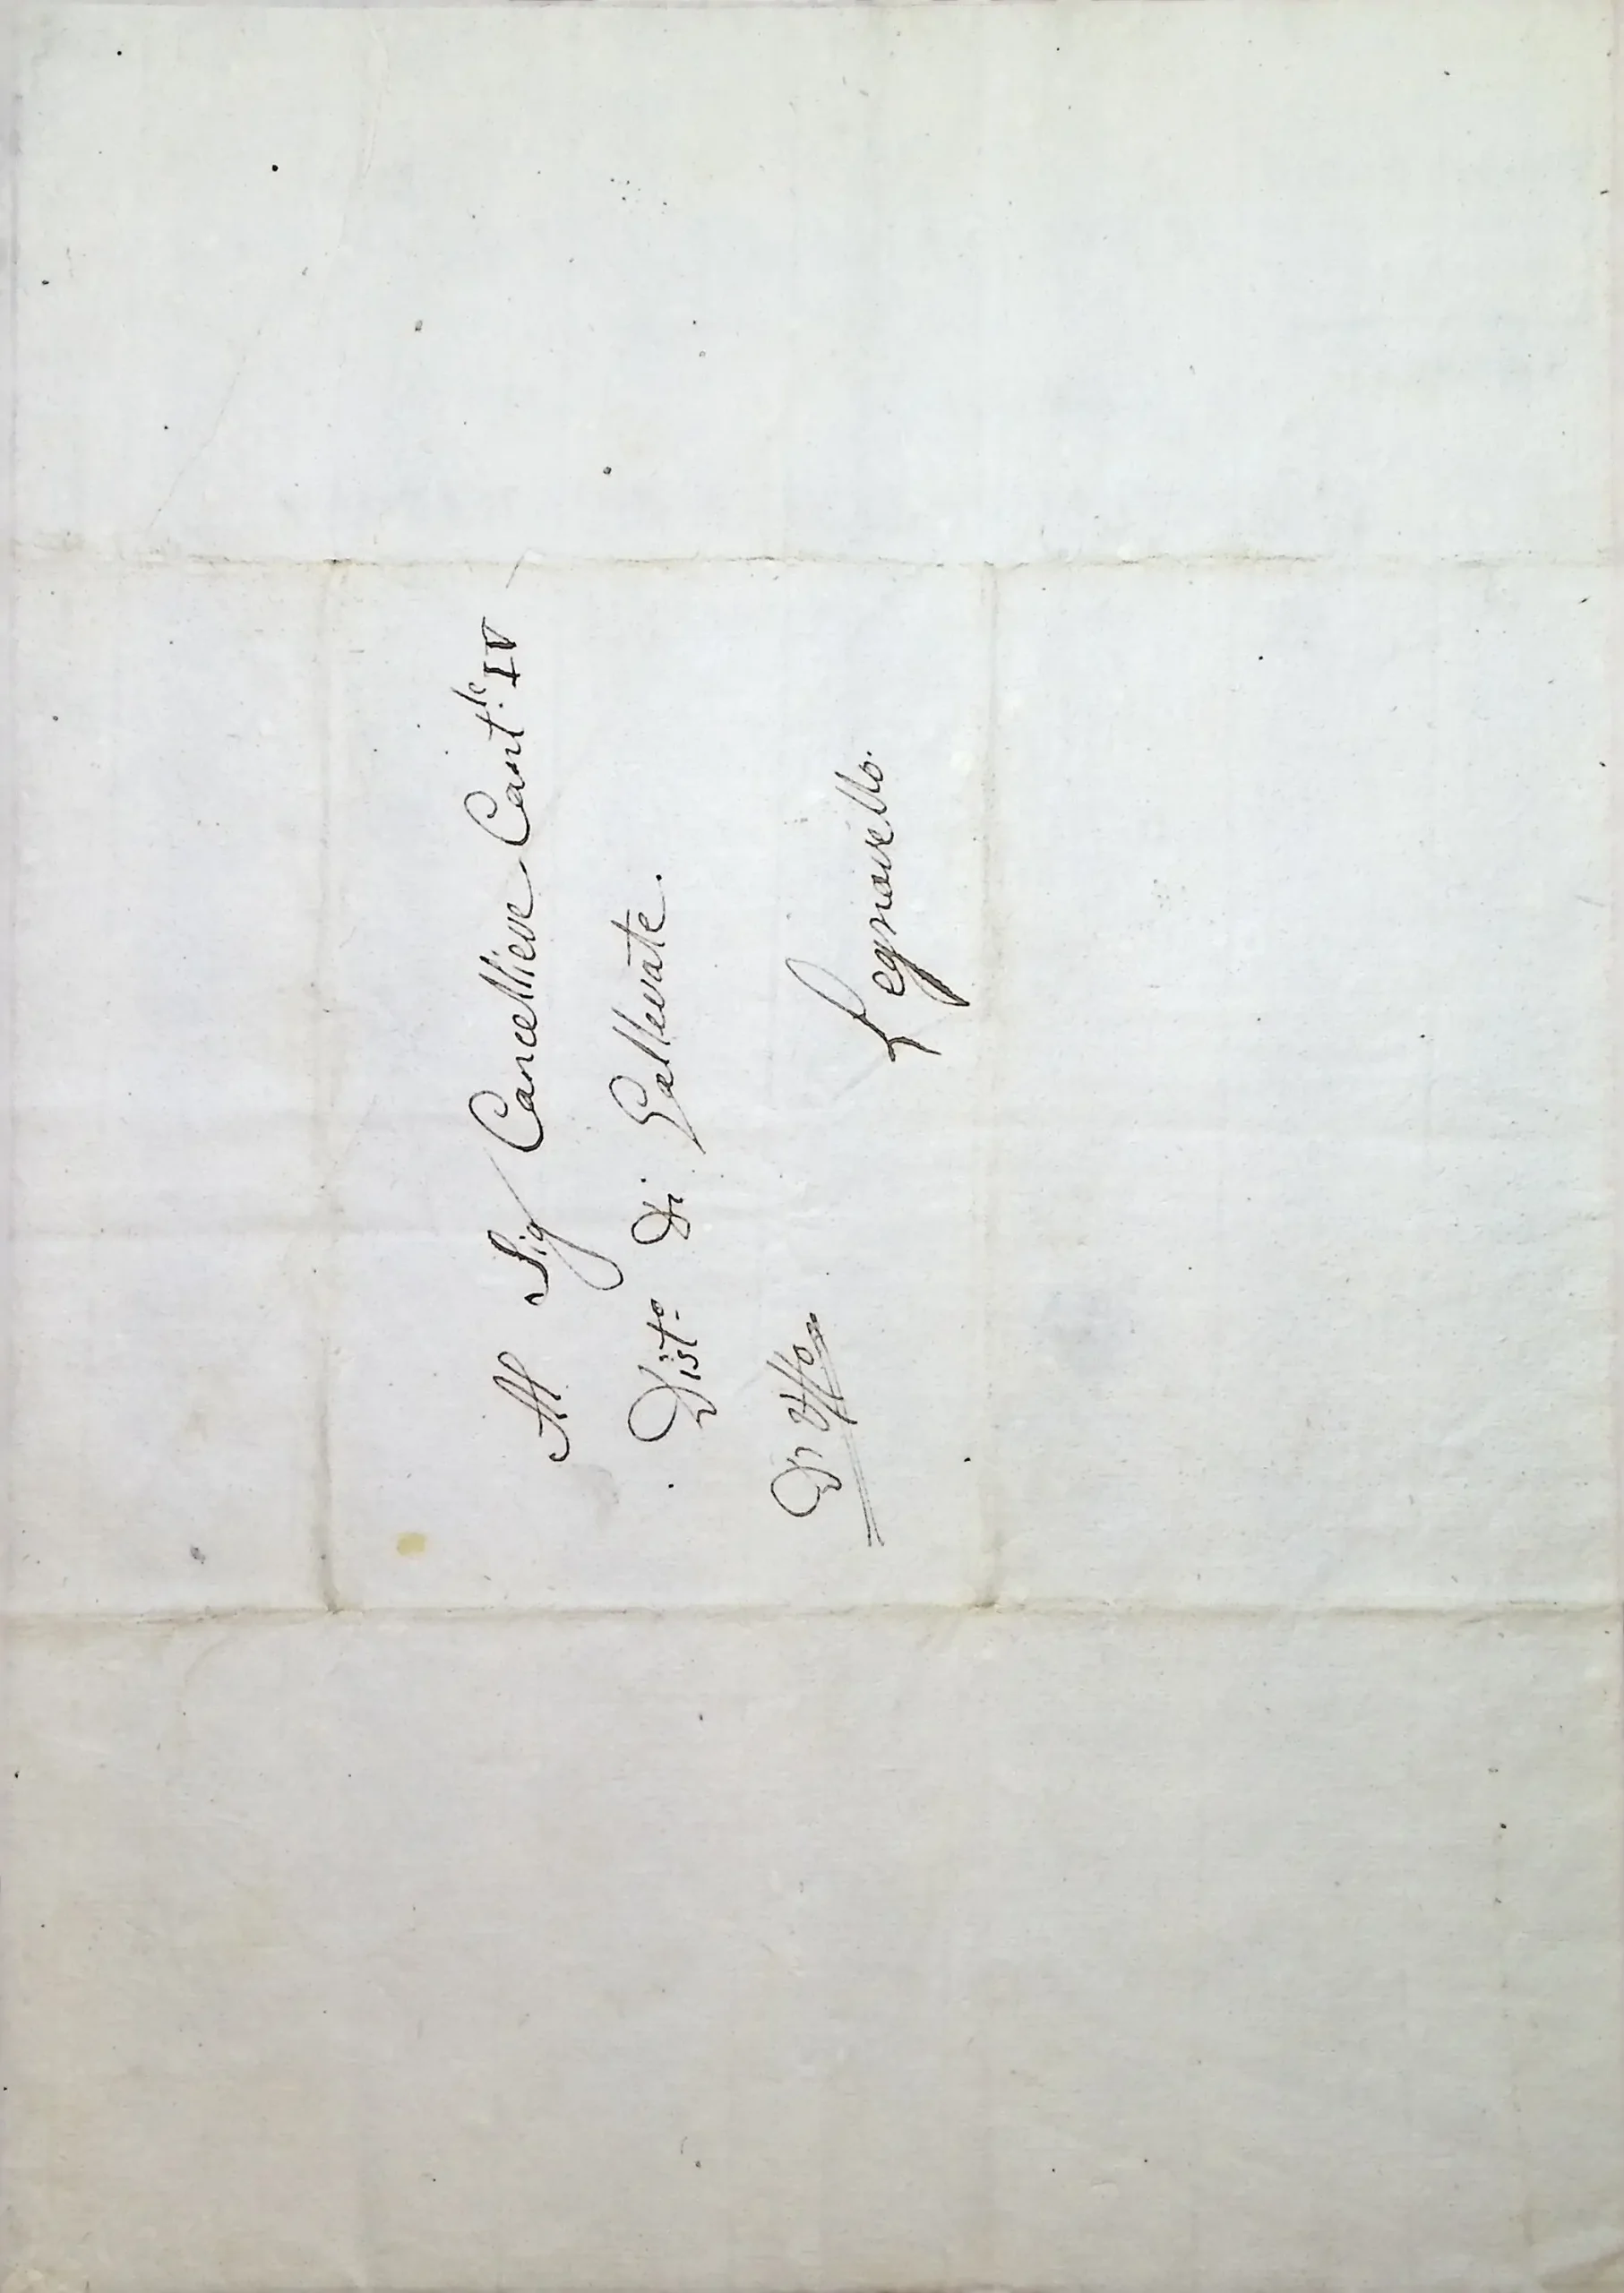 Al Sig Cancelliere Cant.le IV
Dist.o di Gallerate.
D'Uffo
Legnarello.